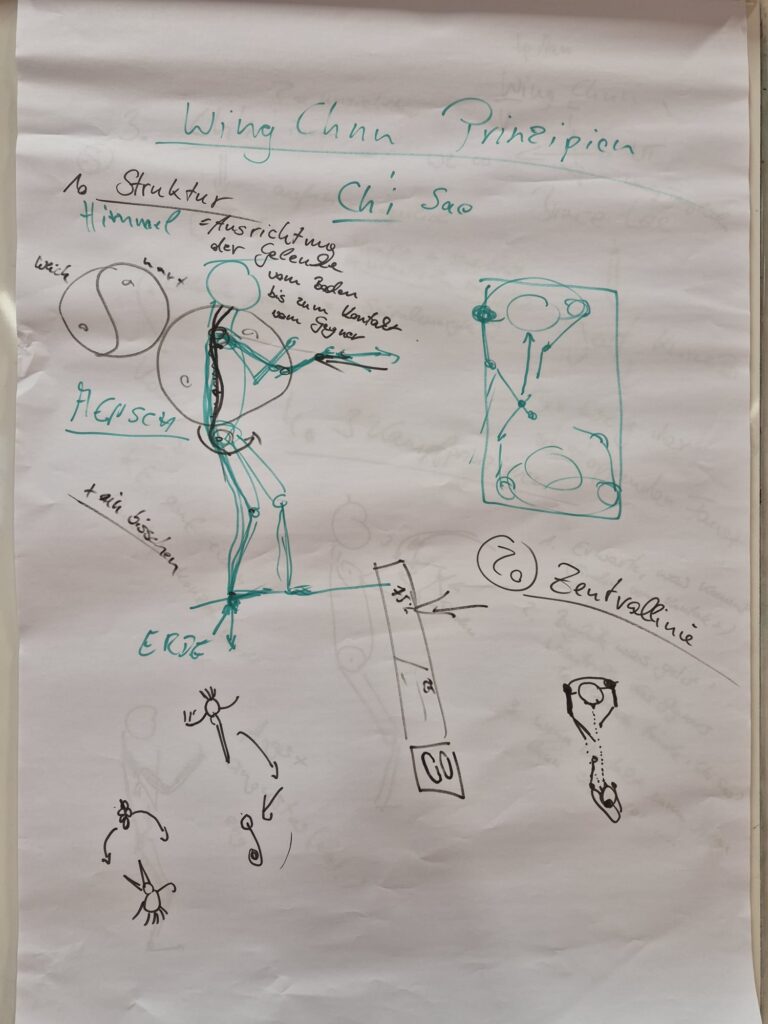 Wing Chun Prinzipien
Chi Sao
1. Struktur
Himmel
= Ausrichtung
der Gelenke
vom Boden
bis zum Kontakt
vom Gegner
weich
hart
MENSCH
+ ein bisschen
ERDE
75%
25
2. Zentrallinie